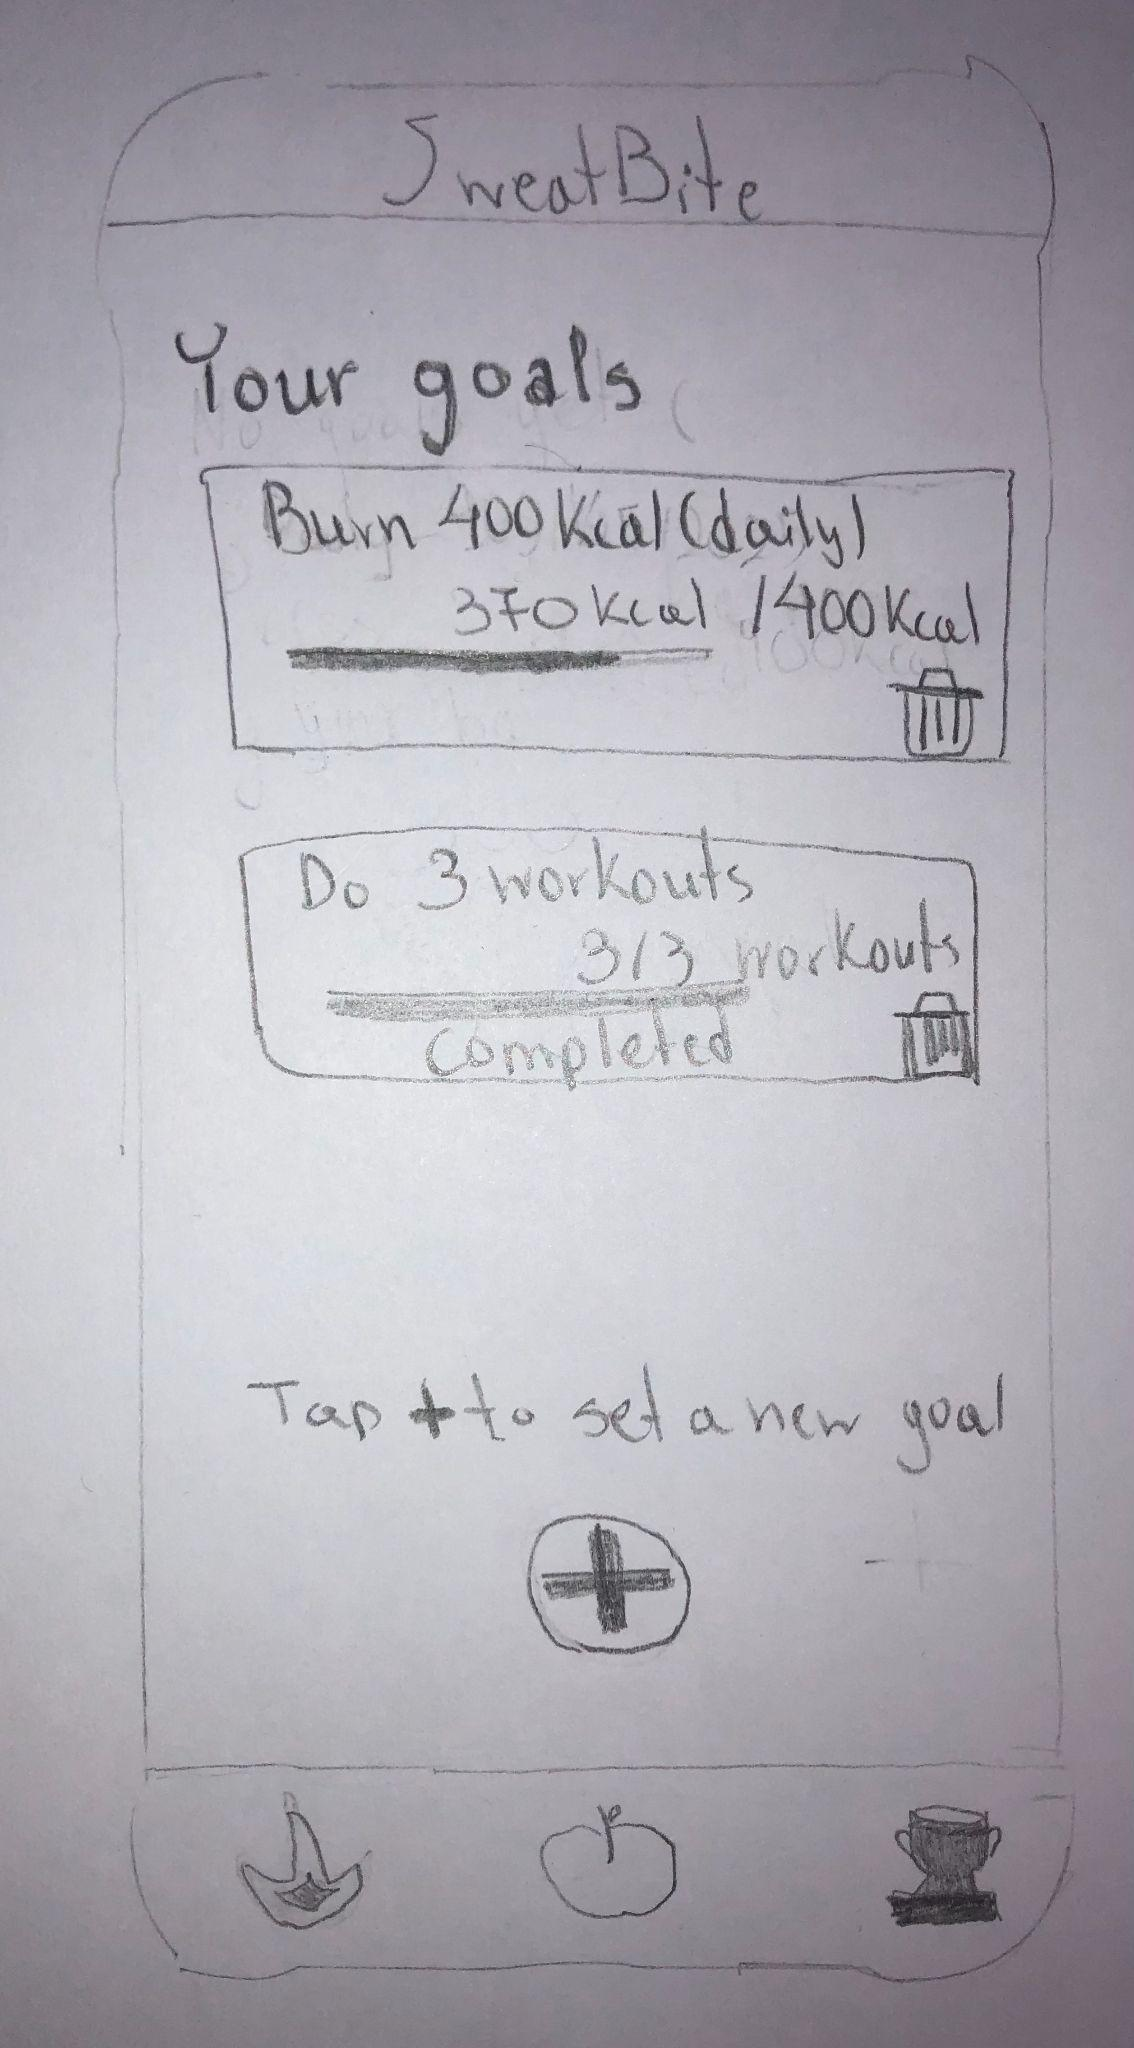 SweatBite
Your goals
Burn 400Kcal (daily)
370 kcal / 400Kcal
Do 3 workouts
3/3 workouts
completed
Tap + to set a new goal
+